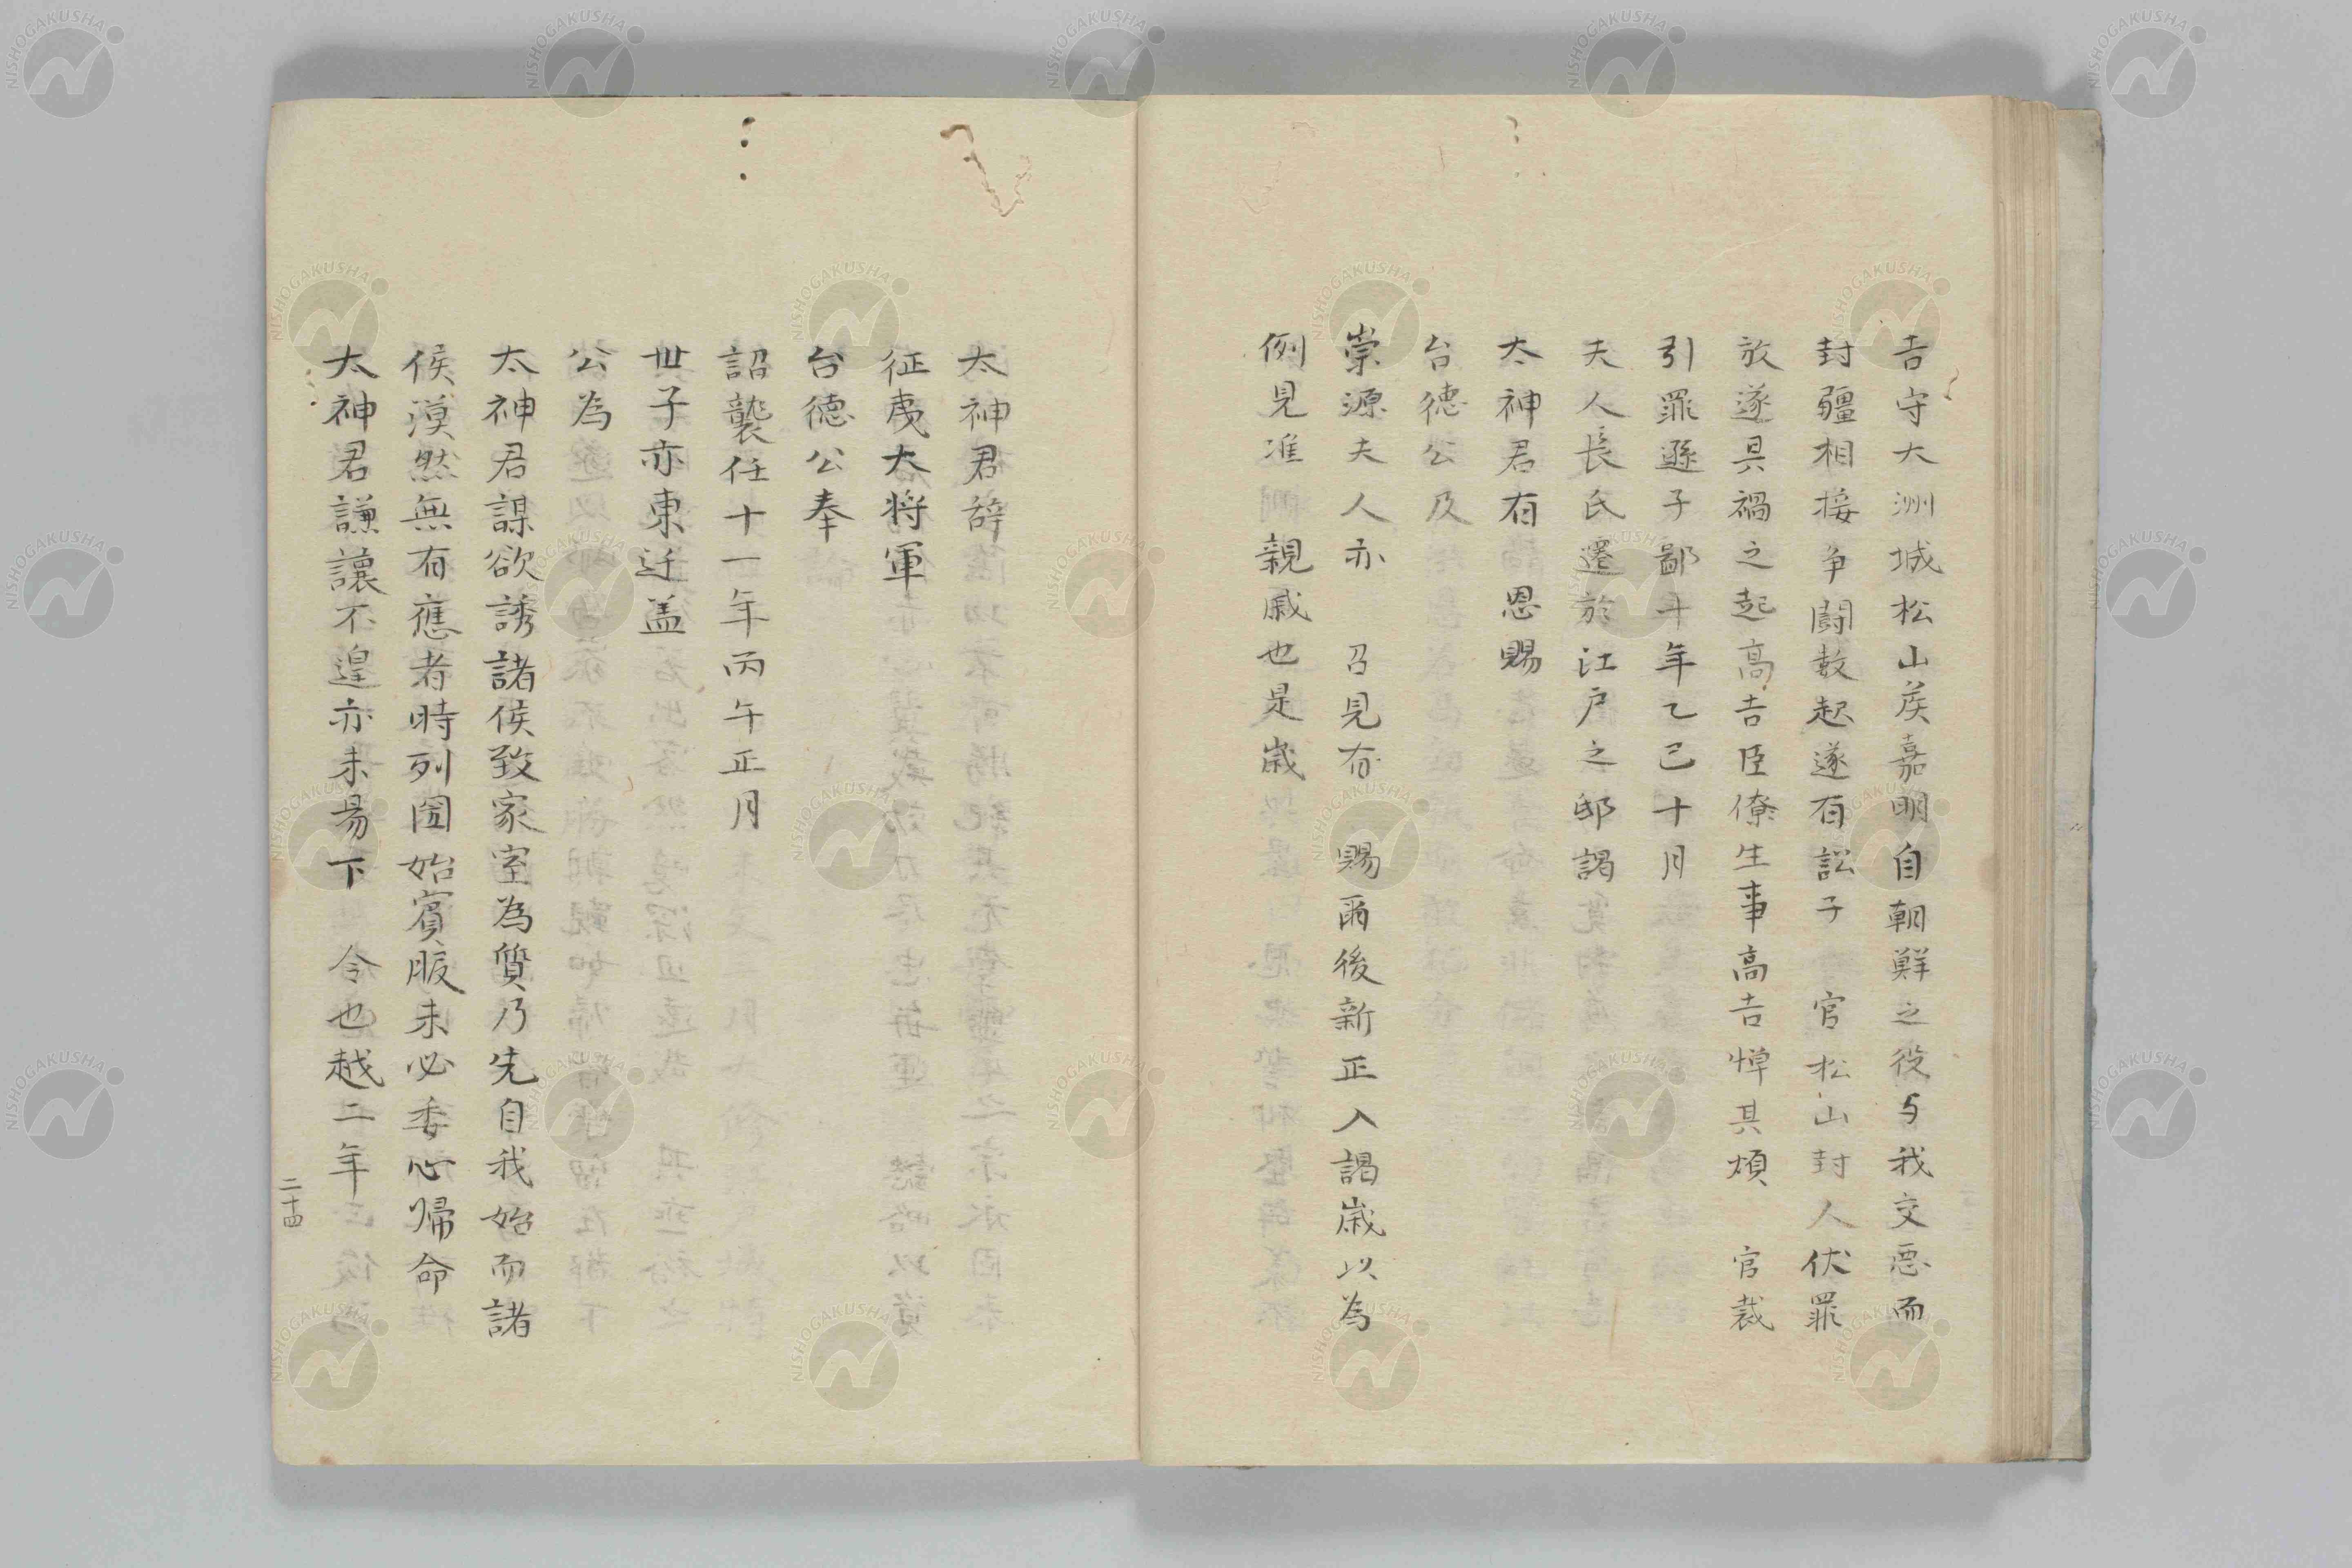 吉守大洲城松山侯嘉明自朝鮮之役与我交悪而
封疆相接争闘数起遂有訟于　官松山封人伏罪
放遂具禍之起高吉臣僚生事高吉憚其煩　官裁
引罪遜于鄙十年乙巳十月
夫人長氏遷於江戸之邸謁
太神君有　恩賜
台徳公及
崇源夫人亦　召見有　賜爾後新正入謁歳以為
例見准　親戚也是歳
太神君辞
征夷大将軍
台徳公奉
詔襲任十一年丙午正月
世子亦東迁盖
公為
太神君謀欲誘諸侯致家室為質乃先自我始而諸
侯漠然無有應者時列國始賓服未必委心帰命
太神君謙讓不遑亦未易下　令也越二年
二十四
NISHOGAKUSHA